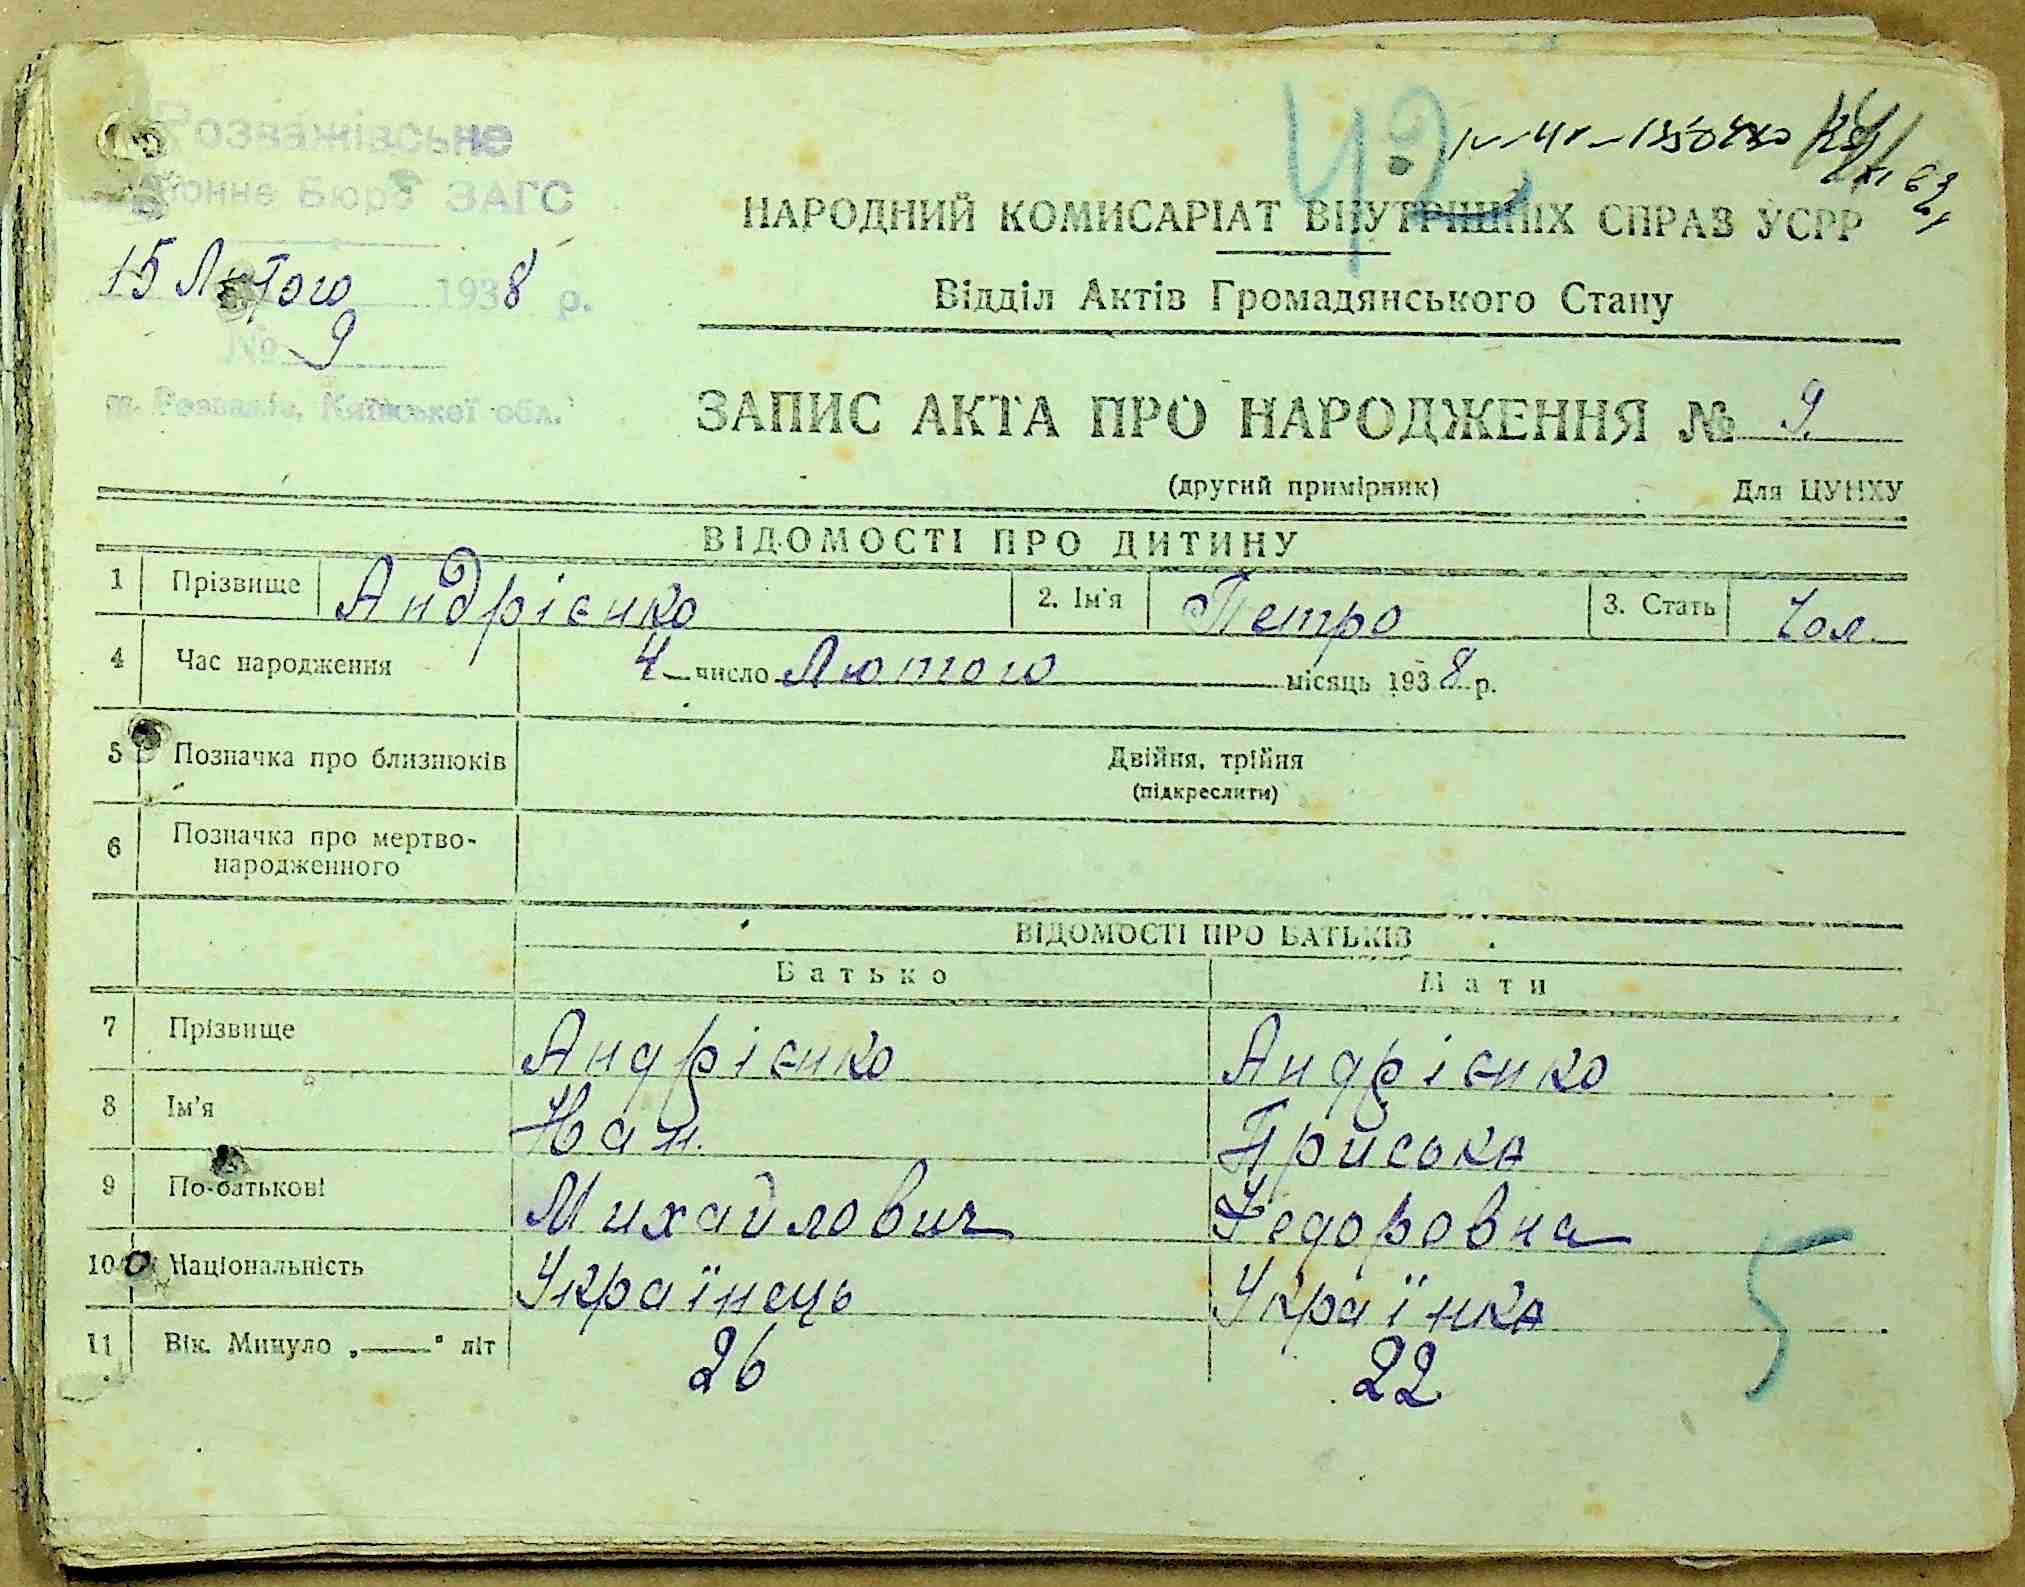 42
Розважівське
Районне Бюро ЗАГС
15 Лютого 1938 р.
№ 9
м. Розважів, Київської обл.
НАРОДНИЙ КОМИСАРІАТ ВНУТРІШНІХ СПРАВ УСРР
Відділ Актів Громадянського Стану
ЗАПИС АКТА ПРО НАРОДЖЕННЯ № 9
(другий примірник) Для ЦУНХУ
ВІДОМОСТІ ПРО ДИТИНУ
1 Прізвище Андрієнко 2. Ім'я Петро 3. Стать Чол.
4 Час народження 4 число Лютого місяць 1938 р.
5 Позначка про близнюків Двійня, трійня
(підкреслити)
6 Позначка про мертво-
народженного
ВІДОМОСТІ ПРО БАТЬКІВ
Батько Мати
7 Прізвище Андрієнко Андрієнко
8 Ім'я Приська
9 По-батькові Михайлович Федоровна
10 Національність Українець Українка
11 Вік. Минуло „——" літ 26 22
5